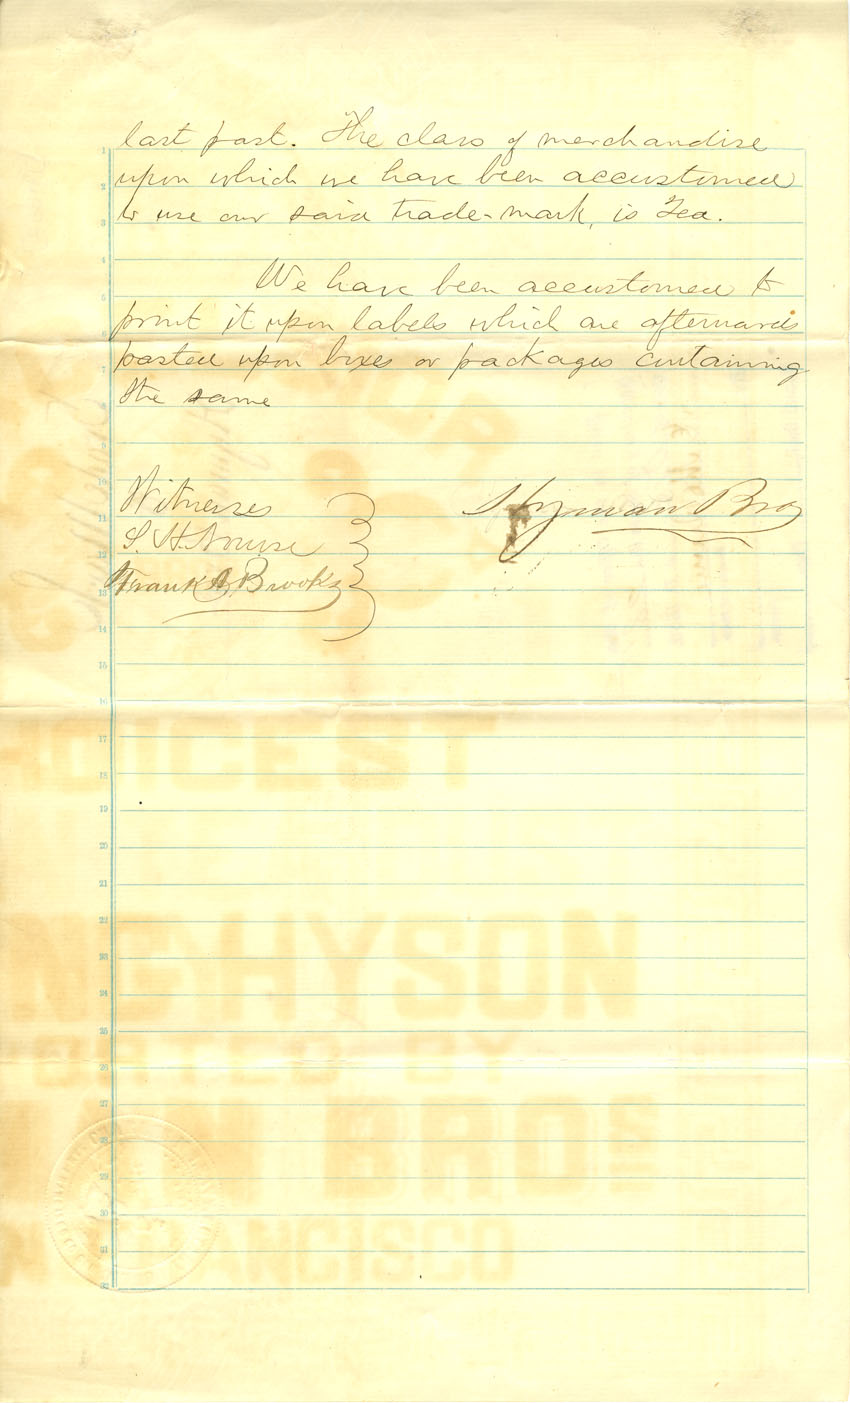 last past. The class of merchandise
upon which we have been accustomed
to use our said trade-mark, is Tea.
We have been accustomed to
print it upon labels which are afterwards
pasted upon boxes or packages containing
the same
Witnesses
S. H. Nourse
Frank A Brooks
Hyman Bros
1
2
3
4
5
6
7
8
9
10
11
12
13
14
15
16
17
18
19
20
21
22
23
24
25
26
27
28
29
30
31
32
HOICEST
NE HYSON
ORTED BY
MAN BROS
N FRANCISCO